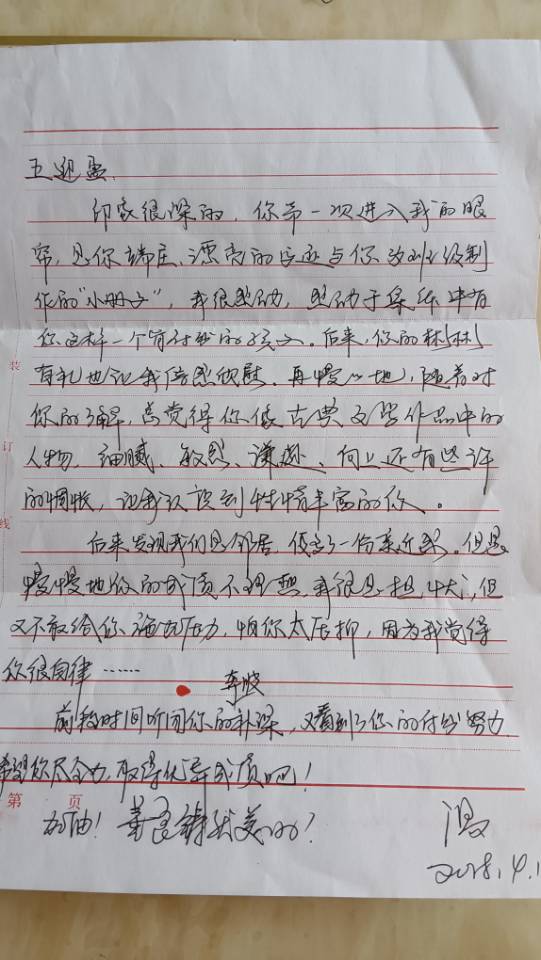 王迎盈、
印象很深的，你第一次进入我的眼
帘，是你端庄、漂亮的字迹与你为班级制
作的"小册子"，我很感动，感动于集体中有
你这样一个肯付出的孩子。后来，你的彬彬
有礼也让我倍感欣慰。再慢慢地，随着对
你的了解，总觉得你像古典文学作品中的
人物，细腻、敏感、谦逊、向上还有些许
的惆怅，让我认识到性情丰富的你。
后来发现我们是邻居，使多了一份亲近感。但是
慢慢地你的成绩不理想，我很是担忧，但
又不敢给你施加压力，怕你太压抑，因为我觉得
你很自律……
李晓
前段时间听闻你的补课，又看到了你的付出努力，
希望你尽全力，取得优异成绩吧！
加油！
第 页
装
订
线
2018.4.1